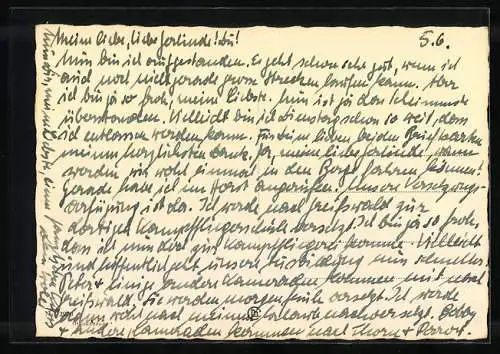 5.6.
Meine liebe, liebe Gerlinde! Du!
Nun bin ich aufgestanden. Es geht schon sehr gut, wenn ich
auch noch nicht gerade grosse Strecken laufen kann. Aber
ich bin ja so froh, meine Liebste. Nun ist ja das Schlimmste
überstanden. Vielleicht bin ich Dienstag schon so weit, dass
ich entlassen werden kann. Für Deine lieben beiden Briefkarten
meinen herzlichsten Dank. Ja, meine liebe Gerlinde, wann
werden wir wohl einmal in den Berge fahren können!
Gerade habe ich im Horst angerufen. Unsere Versetzungs-
verfügung ist da. Ich werde nach Greifswald zur
dortigen Kampffliegerschule versetzt. Ich bin ja so froh,
dass ich nun doch zur Kampffliegerei komme. Vielleicht
und hoffentlich geht unsere Ausbildung nun schneller.
Peter + einige andere Kameraden kommen mit nach
Greifswald. Sie werden morgen früh versetzt. Ich werde
dann wohl nach meiner nachversetzt.
+ andere Kameraden kommen nach Thorn +
Nun Dir, mein Liebste, einen